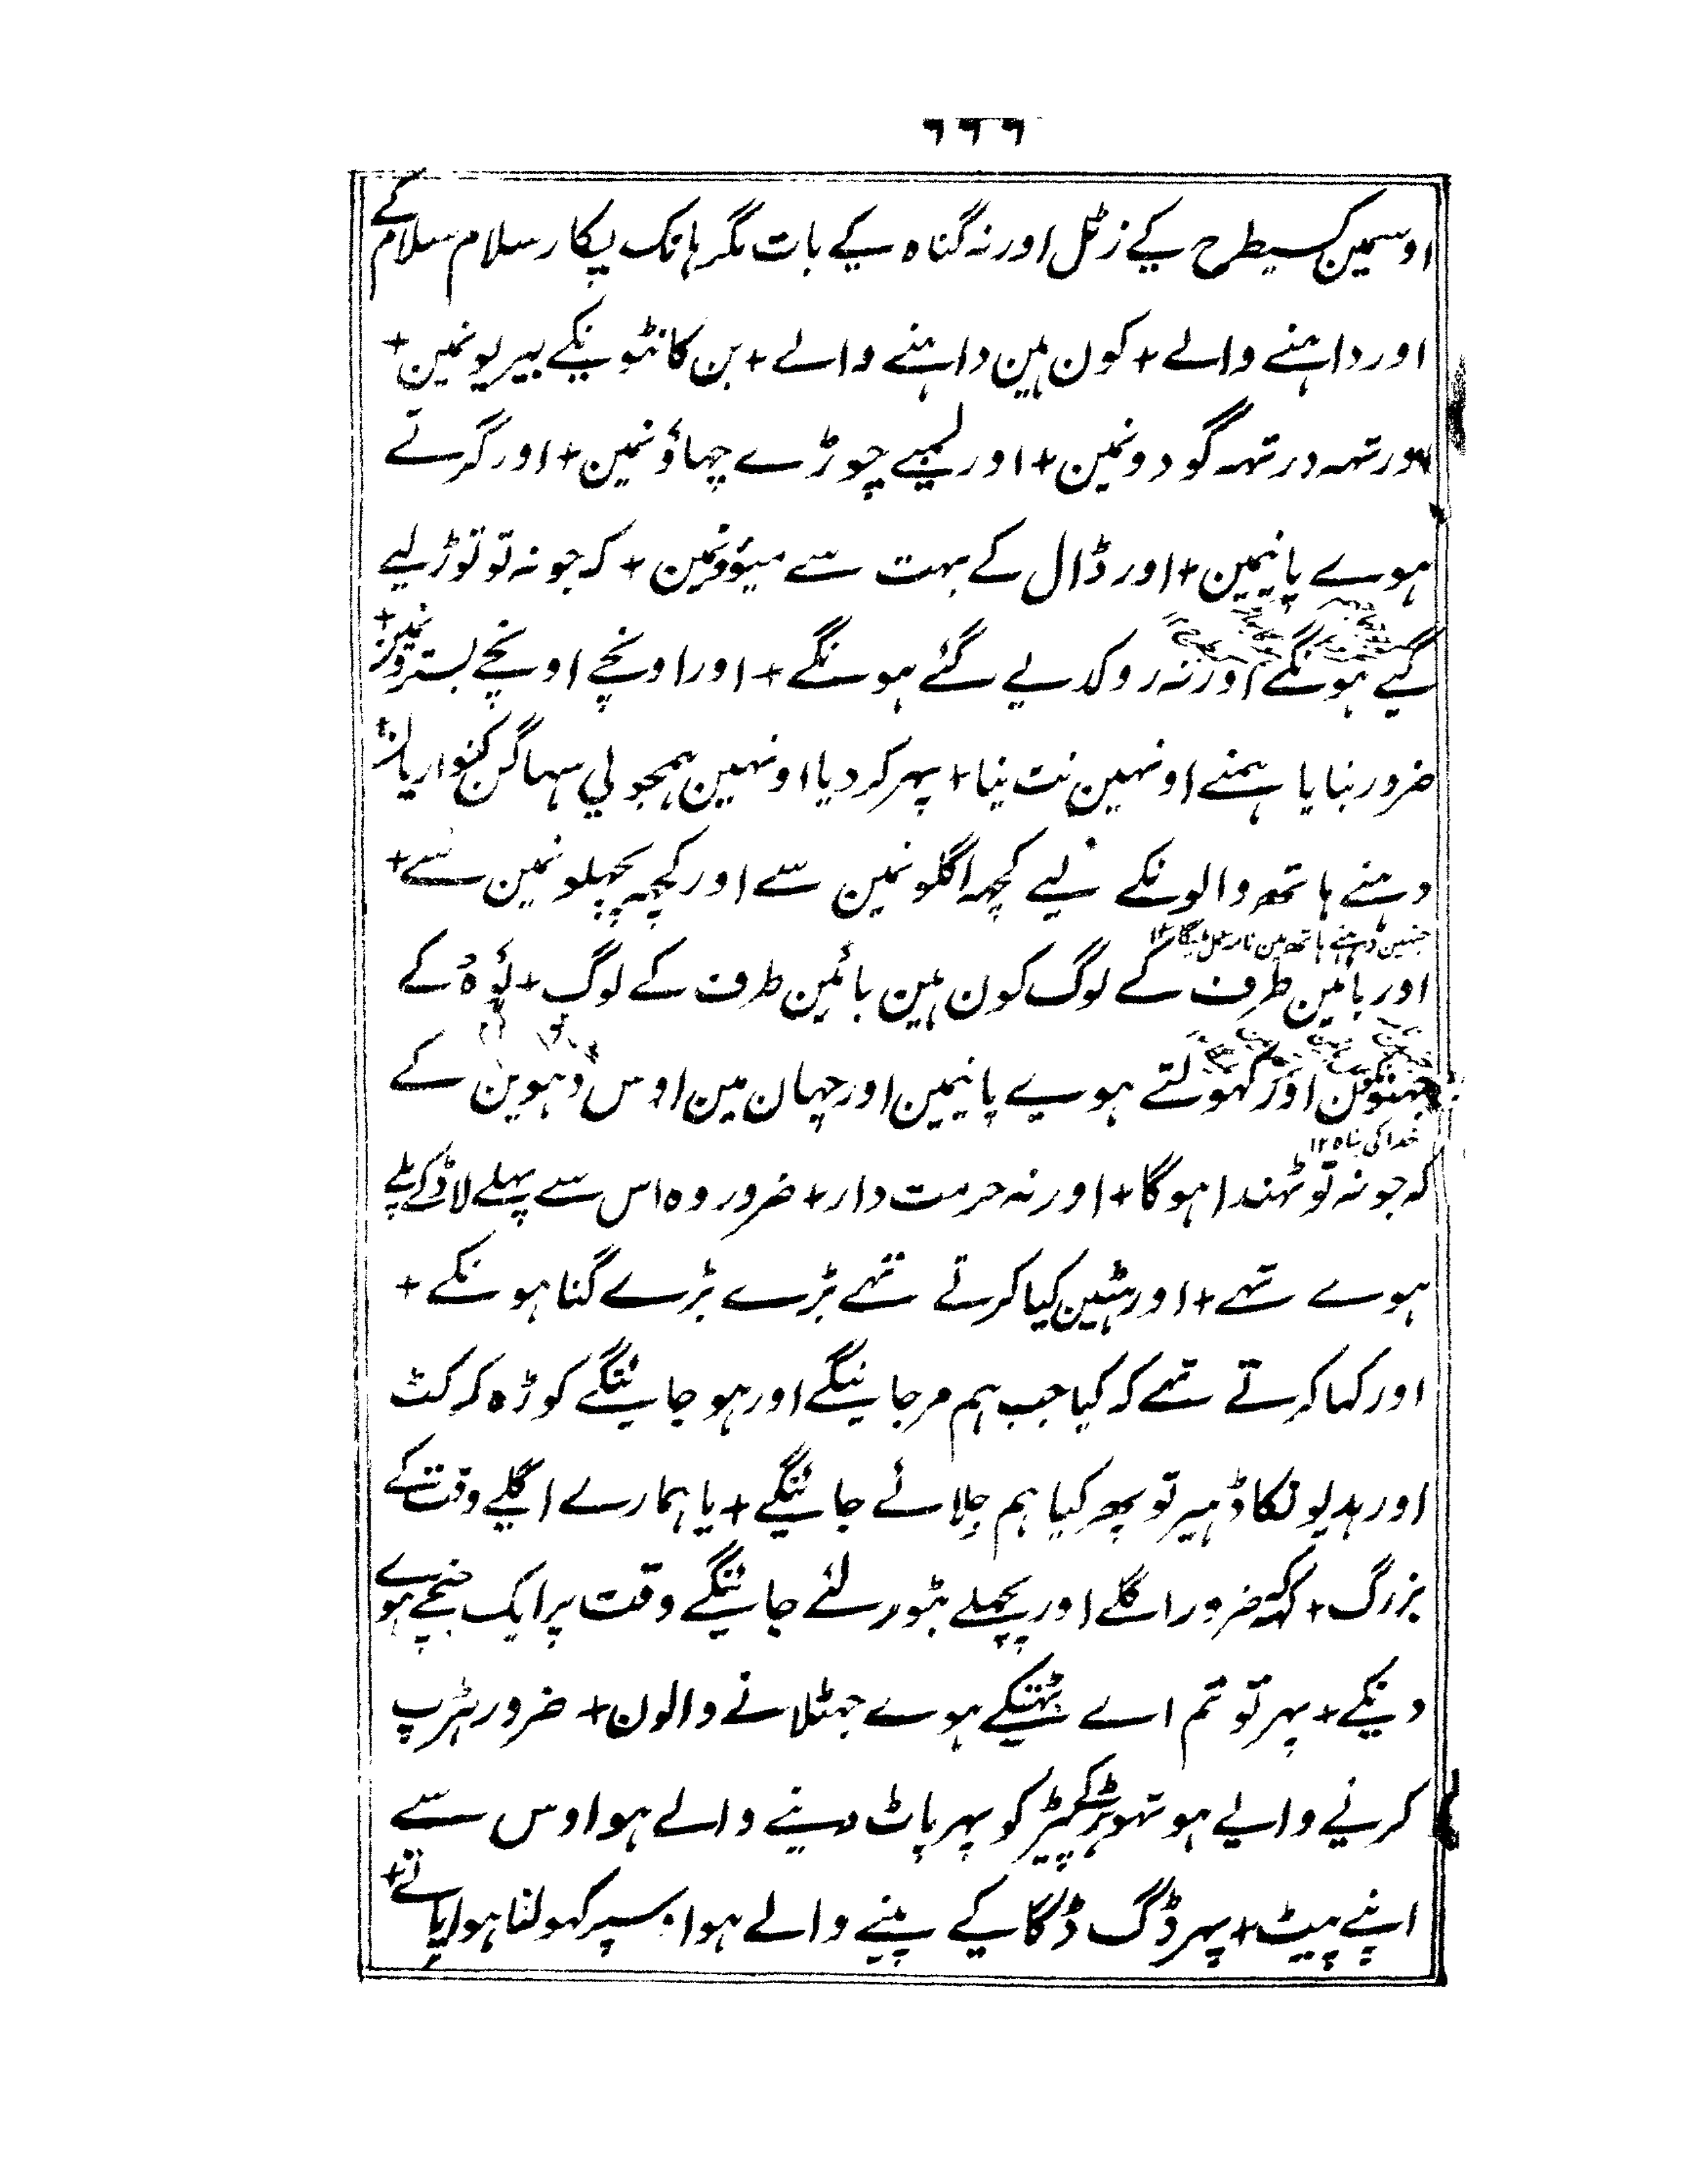 ٦٦٦
اوسمین کسیطرح کے زٹل اور نہ گناہ کے بات مگر ہانک پکار سلام سلام کے
اور داہنے والے + کون ہین داہنے والے + بن کانٹونکے بیریونمین +
اور تہہ در تہہ گودونمین + اور لمبے چوڑے چہاؤنمین + اور گرتے
ہوے پانیمین + اور ڈال کے بہت سے میوؤنمین + کہ جو نہ تو توڑ لیے
گیے ہونگے اور نہ روکدیے گئے ہونگے + اور اونچے اونچے بسترونمین +
ضرور بنایا ہمنے اونہین نت نیا + پہر کر دیا اونہین ہمجولی سہاگن کنواریان +
دہنے ہاتھ والونکے لیے کچہہ اگلونمین سے اور کچہہ پچہلونمین سے +
جنہین دہنے ہاتھ مین نامہ عمل ملیگا ۱۲
اور بائین طرف کے لوگ کون ہین بائین طرف کے لوگ + لوٗہ کے
اور کہولتے ہوے پانیمین اور چہان مین اوس دہوین کے
خدا کی پناہ ۱۲
کہ جو نہ تو ٹہندا ہوگا + اور نہ حرمت دار + ضرور وہ اس سے پہلے لاڈ کے پلے
ہوے تہے + اور ہٹین کیا کرتے تہے بڑے بڑے گناہونکے +
اور کہا کرتے تہے کہ کیا جب ہم مر جائینگے اور ہو جائینگے کوڑہ کرکٹ
اور ہڈیونکا ڈہیر تو پھر کیا ہم جلائے جائینگے + یا ہمارے اگلے وقت کے
بزرگ + کہہ ضرور اگلے اور پچہلے بٹور لئے جائینگے وقت پر ایک جنچے ہوے
دنکے + پہر تو تم اے بہٹکے ہوے جہٹلانے والون + ضرور ہڑپ
کرنے والے ہو تہوہڑکے پیڑ کو پہر پاٹ دینے والے ہو اوس سے
اپنے پیٹ + پہر ڈگ ڈگا کے پینے والے ہو اوسپر کہولتا ہوا پانے +